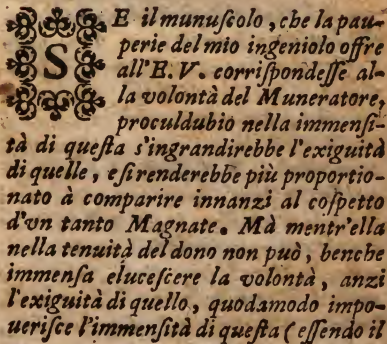 SE il munuſcolo, che la pau-
perie del mio ingeniolo offre
all'E. V. corriſpondeſſe al-
la volontà del Muneratore,
proculdubio nella immenſi-
tà di queſta s'ingrandirebbe l'exiguità
di quelle, e ſi renderebbe più proportio-
nato à comparire innanzi al coſpetto
d'vn tanto Magnate. Mà mentr'ella
nella tenuità del dono non può, benche
immenſa eluceſcere la volontà, anzi
l'exiguità di quello, quodamodo impo-
ueriſce l'immenſità di queſta (eſſendo il